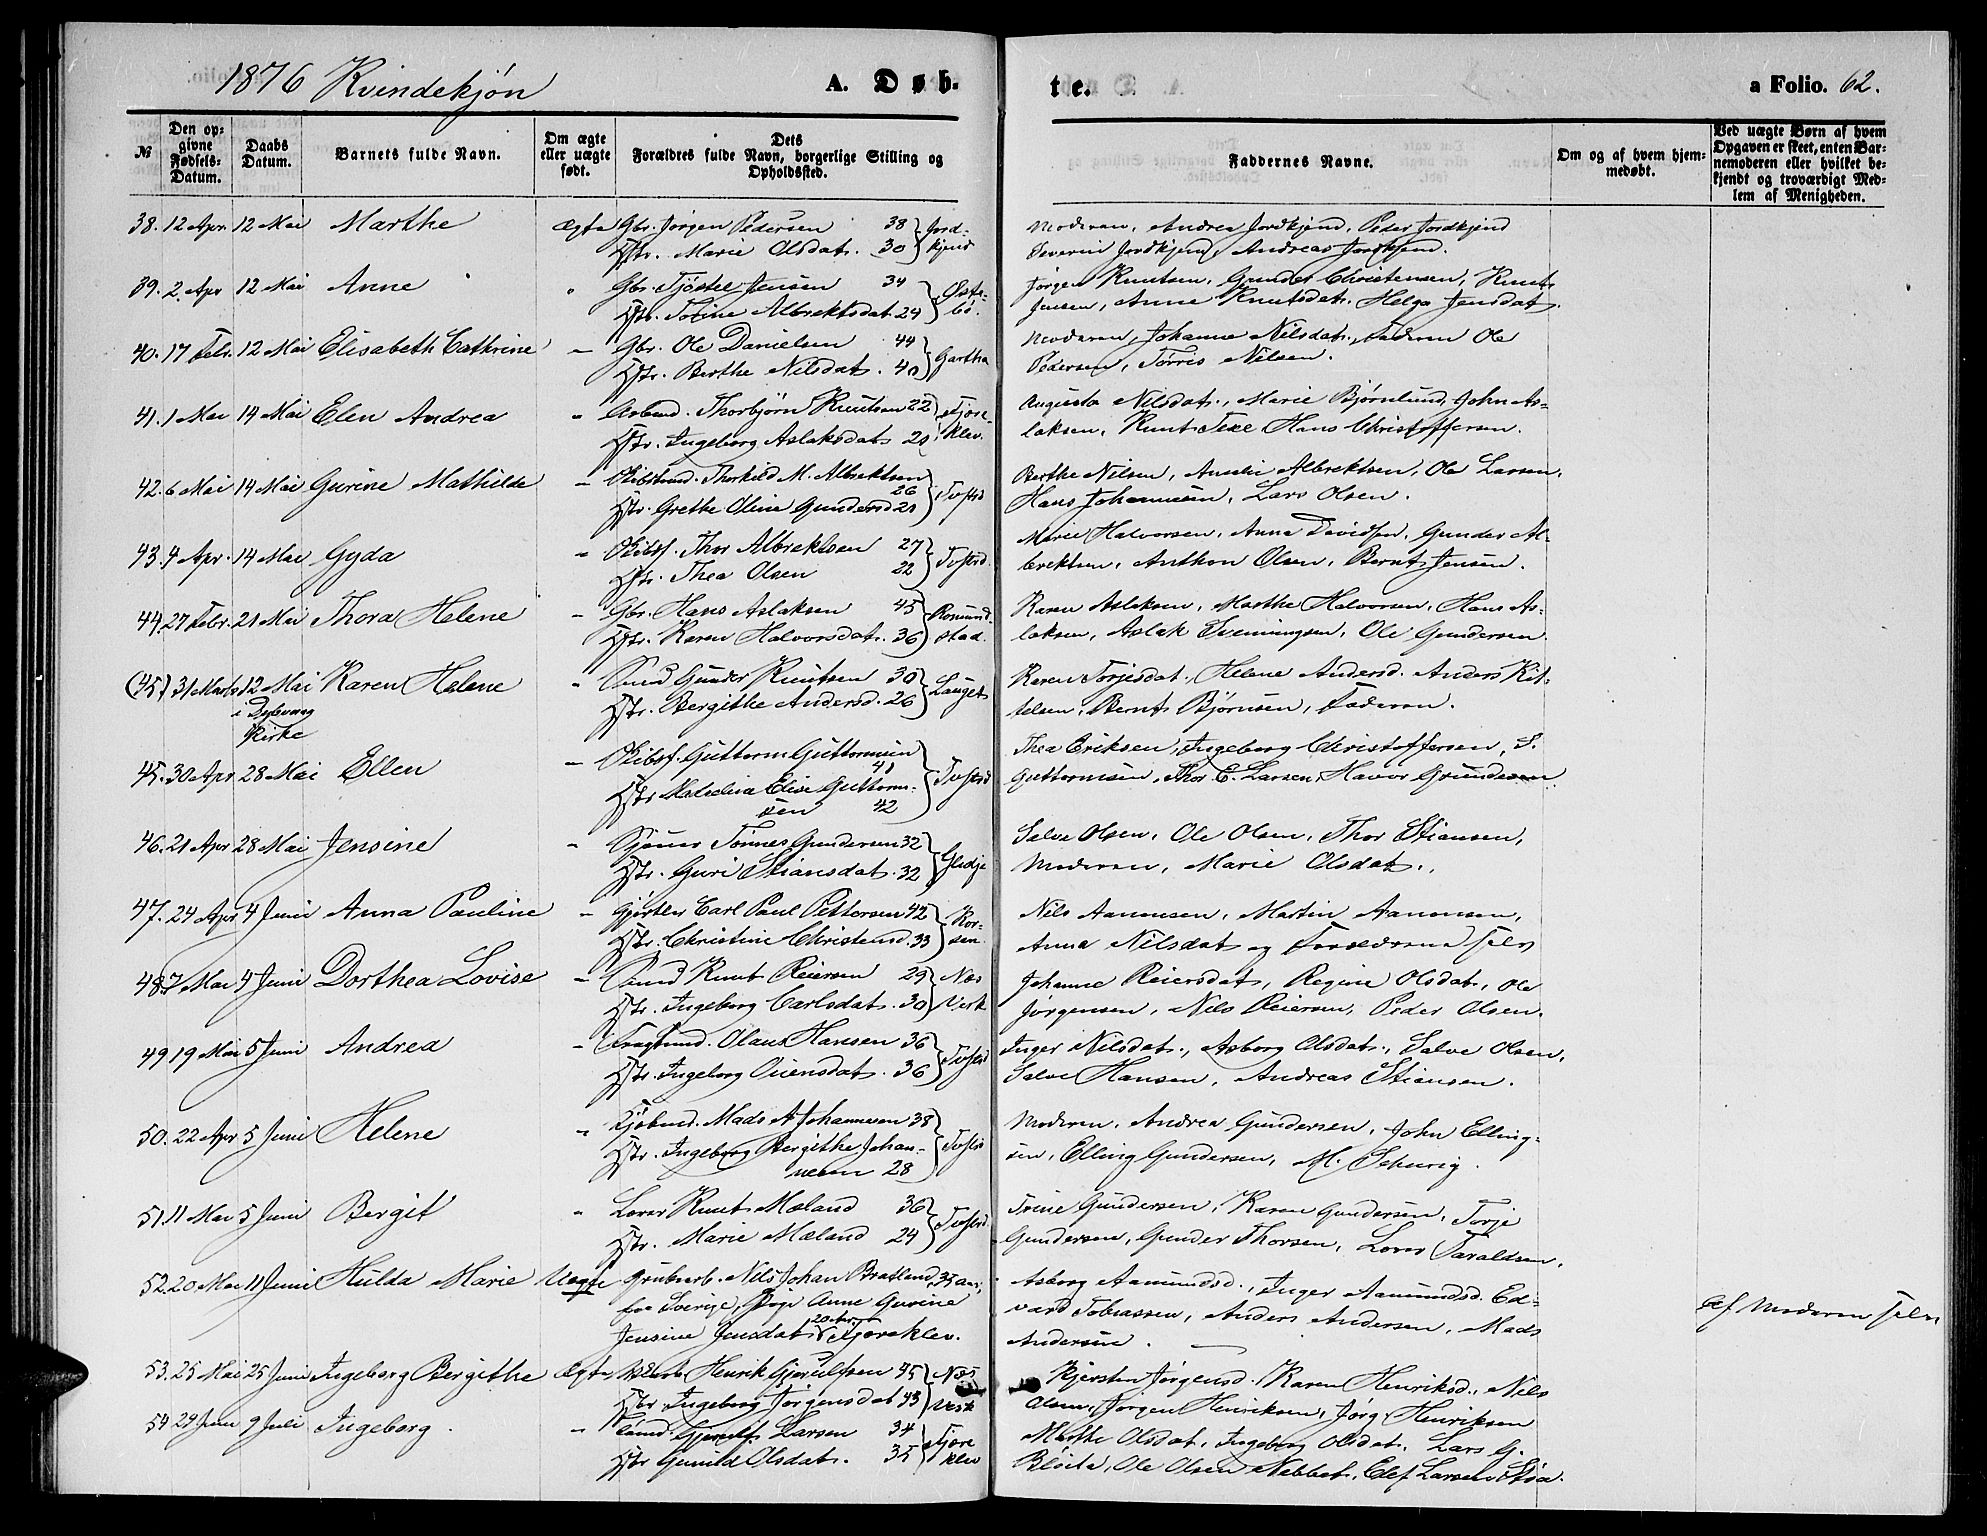 1876 Kvindekjøn
A. Døb-
te.
a Folio. 62.
№
Den op-
givne
Fødsels-
Datum.
Daabs
Datum.
Barnets fulde Navn.
Om ægte
eller uægte
født.
Dets
Forældres fulde Navn, borgerlige Stilling og
Opholdssted.
Faddernes Navne.
Om og af hvem hjem-
medøbt.
Ved uægte Børn af hvem
Opgaven er skeet, enten Bar-
nemoderen eller hvilket be-
kjendt og troværdigt Med-
lem af Menigheden.
38. 12 Apr. 12 Mai Marthe Ægte Gbr. Jørgen Pedersen 38 Jord-
Hstr. Marie Olsdat. 30 kjend
Moderen, Andrea Jordkjend, Peder Jordkjend
Severin Jordkjend, Andreas Jordkjend.
39. 2 Apr 12 Mai Anne " Gbr. Tjøstel Jensen 34 Øste-
Hstr. Torine Albrektsdat 24 bö.
Jørgen Knutsen, Gunder Christensen, Knut
Jensen, Anne Knutsdat. Helga Jensdat.
40. 17 Febr. 12 Mai Elisabeth Cathrine – Gbr. Ole Danielsen 44 Gartha
Hstr. Berthe Nilsdat. 40
Moderen, Johanne Nilsdat., Faderen Ole
Pedersen, Tørris Nilsen.
41. 1 Mai 14 Mai Elen Andrea " Arbmd. Thorbjørn Knutsen 22 Fjære-
Hstr. Ingeborg Aslaksdat klev.
Augusta Nilsdat., Marie Bjørnlund, John As-
laksen, Knut Hans Christoffersen.
42. 6 Mai 14 Mai Gurine Mathilde – Thorkild M. Albrektsen
26
Hstr. Grethe Oline Gundersd 21
Berthe Nilsen, Amelie Albrektsen, Ole Larsen,
Hans Johannesen, Lars Olsen.
43. 4 Apr. 14 Mai Gyda " Skibsf. Thor Albrektsen 27
Hstr. Thea Olsen 22
Marie Halvorsen, Anna Davidsen, Gunder Al-
brektsen, Anthon Olsen, Bernt Jensen.
44. 27 Febr. 21 Mai Thora Helene – Gbr. Hans Aslaksen 45 Rosmund-
Hstr. Karen Halvorsdat. 36 stad.
Karen Aslaksen, Marthe Halvorsen, Hans As-
laksen, Aslak Svenningsen, Ole Gundersen.
(45) 31 Marts 12 Mai Karen Helene " Gunder Knutsen 30 Lauget
i Dybvaag
Kirke
Hstr. Bergithe Andersd. 26
Karen Torjesdat., Helene Andersd. Anders Kit-
telsen, Bernt Bjørnsen, Faderen.
45. 30 Apr 28 Mai Ellen – Skibsf. Guttorm Guttormsen
41
Hstr. Elise Guttorm-
sen 42
Thea Eriksen, Ingeborg Christoffersen, S.
Guttormsen, Thor E. Larsen, Havor Gundersen
46. 21 Apr 28 Mai Jensine " Tönnes Gundersen 32 Glidje
Hstr. Guri Stiansdat. 32
Salve Olsen, Ole Olsen, Thor Stiansen,
Moderen, Marie Olsdat.,
47. 24 Apr 4 Juni Anna Pauline – Gjørtler Carl Paul Pettersen 42
Hstr. Christine Christensd. 33
Nils Aanonsen, Martin Aanonsen,
Anna Nilsdat og Forældrene selv
48. 7 Mai 4 Juni Dorthea Lovise – Knut Reiersen 29 Næs
Hstr. Ingeborg Carlsdat. 30 Verk
Johanne Reiersdat, Regine Olsdat, Ole
Jørgensen, Nils Reiersen, Peder Olsen.
49. 19 Mai 5 Juni Andrea – Olaus Hansen 36
Hstr. Ingeborg 36
Inger Nilsdat., Asborg Olsdat., Salve Olsen,
Salve Hansen, Andreas Stiansen.
50. 22 Apr 5 Juni Helene " Mads A Johannesen 38
Hstr. Ingeborg Bergithe Johan-
nesen 28
Moderen, Andrea Gundersen, John Elling-
sen, Elling Gundersen, M. Schurig.
51. 11 Mai 5 Juni Bergit " Knut Mæland 36
Hstr. Marie Mæland 24
Trine Gundersen, Karen Gundersen, Torje
Gundersen, Gunder Thorsen, Taraldsen,
52. 20 Mai 11 Juni Hulda Marie Uægte Grubearb. Nils Johan Bratland, 35 aar,
fra Sverige, Pige Anne Gurine
Jensine Jensdat, 20 Aar, Fjæreklev.
Asborg Aamundsd., Inger Aamundsd. Ed-
vard Tobiassen, Anders Andersen, Mads
Andersen.
Af Moderen selv
53. 25 Mai 25 Juni Ingeborg Bergithe Ægte Henrik Gjerulfsen 45 Næs
Hstr. Ingeborg Jørgensdat 43 Verk
Kjersten Jørgensd. Karen Henriksd., Nils
Olsen, Jørgen Henriksen, Jørg. Henriksen
54 29 Juni 9 Juli Ingeborg. " Gjerulf Larsen 34 Fjære
Hstr Gunild Olsdat. 35 klev
Marthe Olsdat, Ingeborg Olsdat, Lars G.
Ole Olsen Nebbet, Larsen